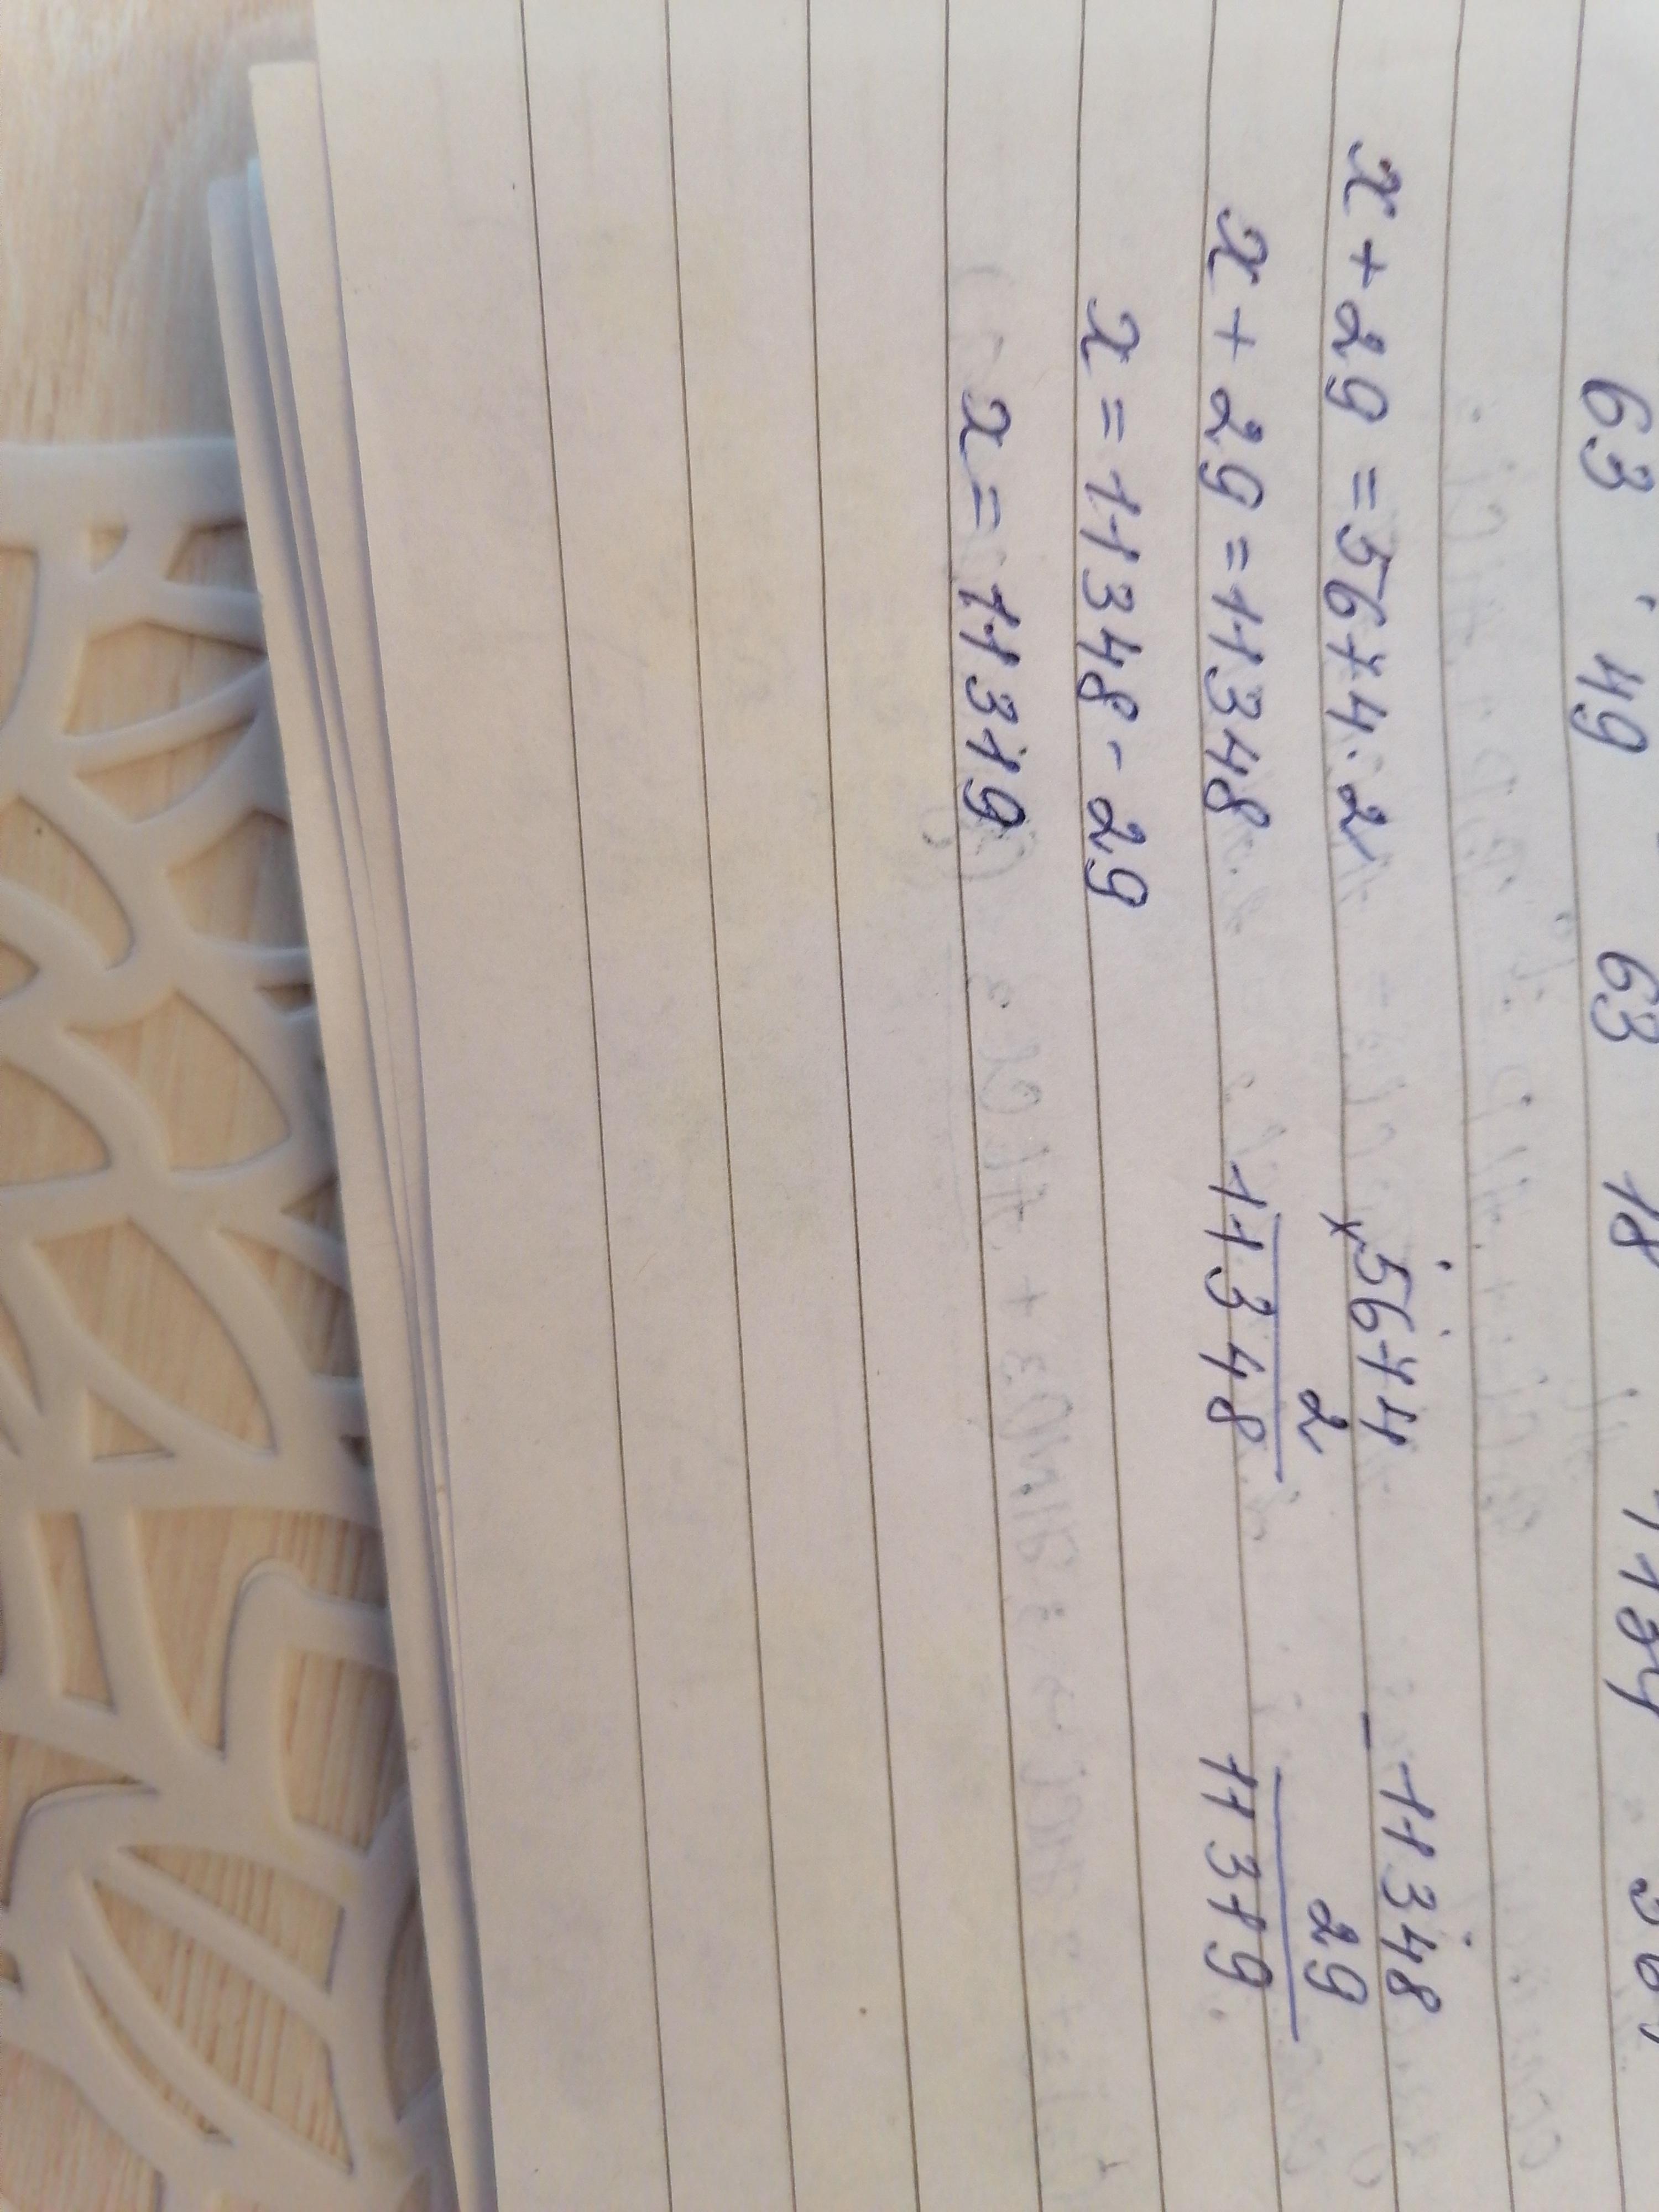 63 · 49 63 18
x + 29 = 5674 · 2
x + 29 = 11348
x = 11348 - 29
x = 11319
× 5674
2
11348
- 11348
29
11319